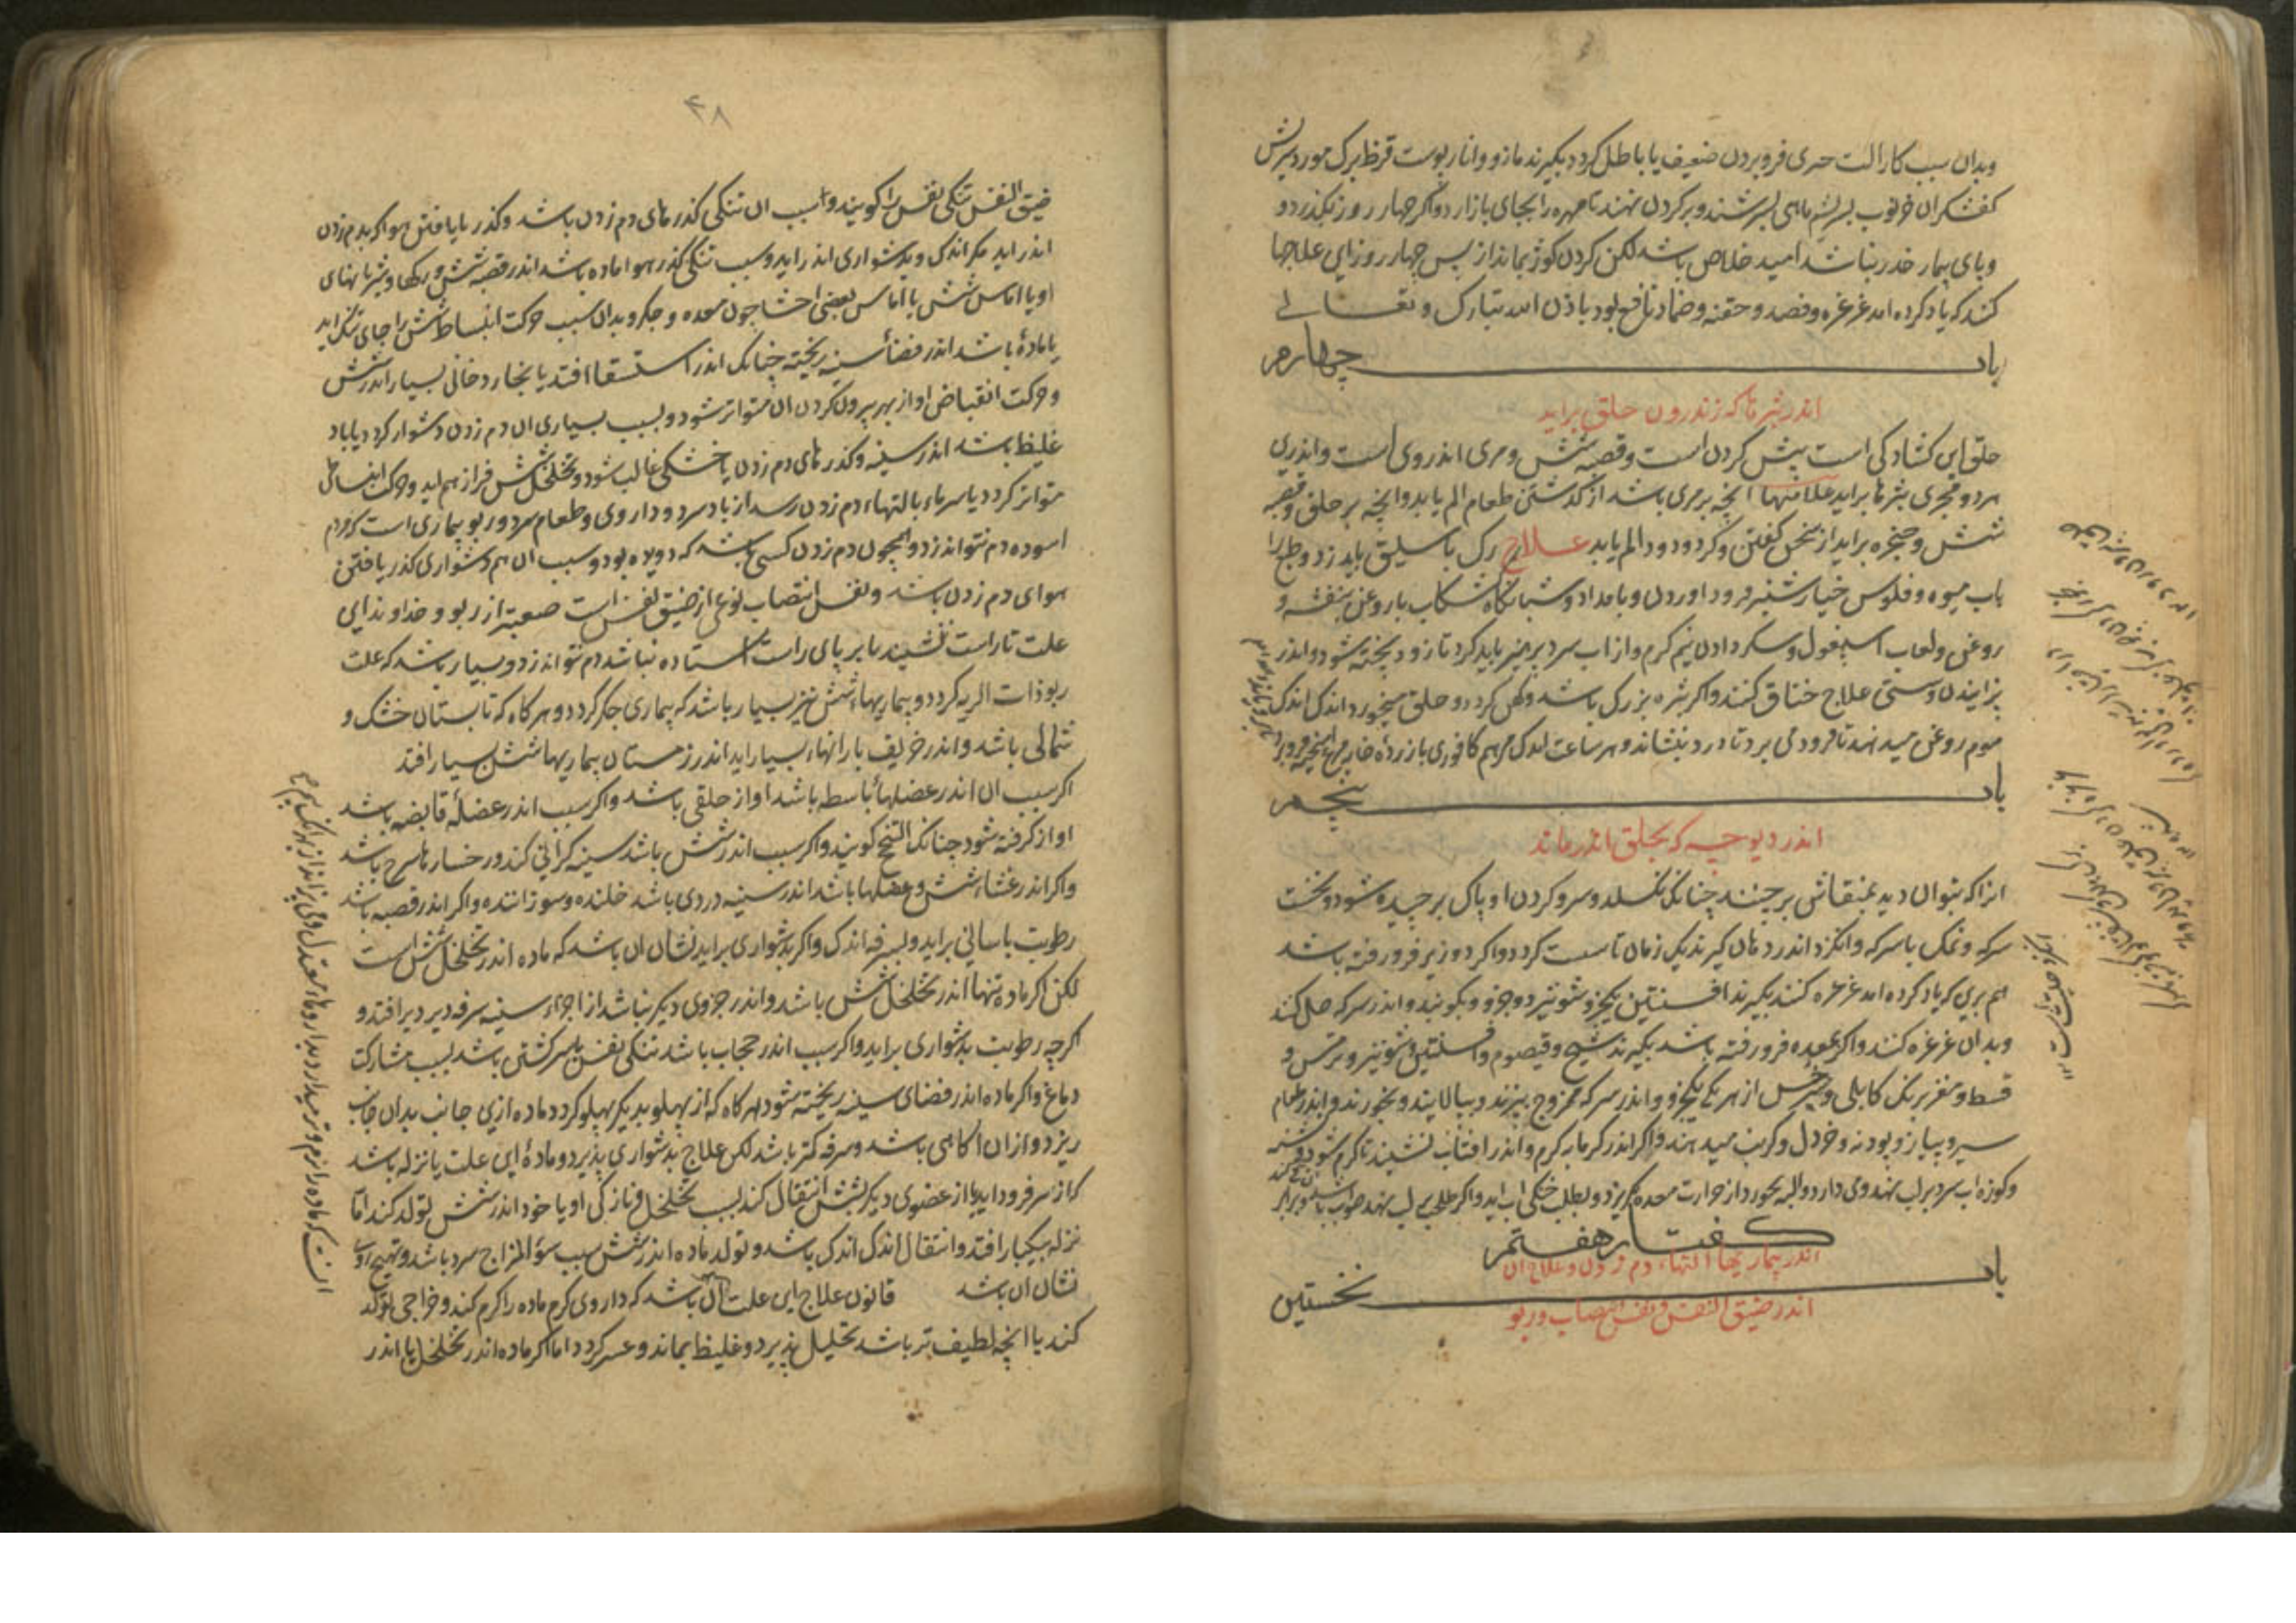 وبدان سبب کار الت فرو بردن ضعیف یا باطل کردد بکیرند مازو و انار پوست قرظ برک مورد سریش
کفشکران خرنوب بسریشم ماهی بسرشند و بر کردن نهند تا مهره را بجای باز ارد واکر چهار روز بکذرد و
وپای بیمار خدر نباشد امید خلاص باشد لکن کردن کوژ بماند از پس چهار روز این علاجها
کنند که یاد کرده امد غرغره و فصد و حقنه و ضماد نافع بود باذن الله تبارک و تعالی
باب چهارم
اندر بثرها که اندرون حلق براید
حلق این کشادکی است پیش کردن است و قصبه شش و مری اندر وی است و اندرین
هردو مجری بثرها براید علامتها انچه بر مری باشد از کذشتن طعام الم یابد و انچه بر حلق و قصبه
شش و حنجره براید از سخن کفتن و کرد و دود الم یابد علاج رک باسلیق باید زد و طبع را
باب میوه و فلوس خیار شنبر فرود اوردن و بامداد و شبانکاه کشکاب با روغن بنفشه و
روغن ولعاب اسپغول و شکر دادن نیم کرم و از اب سرد پرهیز باید کرد تا زود پخته شود و اندر
پزانیدن و سستی علاج خناق کنند و اکر بثره بزرک باشد و کهن کردد و حلق میخورد اندک اندک
موم روغن میدهند تا فرود می برد تا درد بنشاند و هر ساعت اندک مرهم کافوری با زرده خایه مرغ امیخته فرو برد
باب پنجم
اندر دیوچه که بحلق اندر ماند
انرا که بتوان دید بمنقاش برچنند چنانک نکسلد و سر و کردن او پاک برچیده شود و نخست
سرکه و نمک یا سرکه و انکزد اندر دهان کیرند یک زمان تا سست کردد و اکر دوزیر فرو رفته باشد
هم برین که یاد کرده امد غرغره کنند بکیرند افسنتین یکجزو شونیز دو جزو و بکوبند و اندر سرکه حل کنند
و بدان غرغره کنند و اکر بمعده فرو رفته باشد بکیرند شیح و قیصوم و افسنتین و شونیز و ترمس و
قسط و مغز برنک کابلی و سرخس از هر یکی یکجزو و اندر سرکه ممزوج بپزند و بپالایند و بخورند و اندر طعام
سیر و پیاز و پودنه و خردل و کرنب میدهند و اکر اندر کرمابه کرم و اندر افتاب نشیند تا کرم شود و تشنه
و کوزه اب سرد بر لب نهند وی دارد و البه بحورد از حرارت معده بکریزد و بطلب خنکی اب اید
کفتار هفتم
اندر بیماریهاء التهاء دم زدن و علاج ان
باب نخستین
اندر ضیق النفس و نفس انتصاب و ربو
۴۸
ضیق النفس تنکی نفس را کویند و سبب ان تنکی کذرهای دم زدن باشد و کذر نایافتن هوا که بدم زدن
اندر اید مکر اندک و بدشواری اندر اید و سبب تنکی کذر هوا ماده باشد اندر قصبه شش و رکها و شریانهای
او یا اماس شش یا اماس بعضی احشا چون معده و جکر و بدان سبب حرکت انبساط شش را جای تنک اید
یا ماده باشد اندر فضاء سینه ریخته چنانک اندر استسقا افتد یا بخار دخانی بسیار اندر شش
و حرکت انقباض او از بهر بیرون کردن ان متواتر شود و بسبب بسیاری ان دم زدن دشوار کردد یا باد
غلیظ باشد اندر سینه و کذرهای دم زدن یا خشکی غالب شود و تخلخل شش فراز هم اید و حرکت انبساط
متواتر کردد یا سرما بالتهاء دم زدن رسد از باد سرد و داروی و طعام سرد و ربو بیماری است که مردم
اسوده دم نتواند زد و همچون دم زدن کسی باشد که دویده بود و سبب ان هم دشواری کذر یافتن
هوای دم زدن باشد و نفس انتصاب نوعی از ضیق نفس است صعبتر از ربو و خداوند این
علت تا راست ننشیند یا بر پای راست استاده نباشد دم نتواند زد و بسیار باشد که علت
ربو ذات الریه کردد و بیماریهاء شش نیز بسیار باشد که بیماری جکر کردد و هر کاه که تابستان خشک و
شمالی باشد و اندر خریف بارانهاء بسیار اید اندر زمستان بیماریها شش بسیار افتد
اکر سبب ان اندر عضلهاء باسطه باشد اواز حلقی باشد و اکر سبب اندر عضله قابضه باشد
اواز کرفته شود چنانک البح کویند و اکر سبب اندر شش باشد سینه کرانی کند و رخسارها سرخ باشد
و اکر اندر غشاء شش و عضلها باشد اندر سینه دردی باشد خلنده و سوزاننده و اکر اندر قصبه باشد
رطوبت باسانی براید و بسرفه اندک و اکر بدشواری براید نشان ان باشد که ماده اندر تخلخل شش است
لکن اکر ماده تنها اندر تخلخل شش باشد و اندر جزوی دیکر نباشد از اجزاء سینه سرفه دیر دیر افتد و
اکرچه رطوبت بدشواری براید و اکر سبب اندر حجاب باشد تنکی نفس با سرکشتی باشد بسبب مشارکت
دماغ و اکر ماده اندر فضای سینه ریخته شود هر کاه که از پهلو بدیکر پهلو کردد ماده ازین جانب بدان جانب
ریزد و از ان اکاهی باشد و سرفه کمتر باشد لکن علاج بدشواری پذیرد و ماده این علت یا نزله باشد
که از سر فرود اید یا از عضوی دیکر بشش انتقال کند بسبب تخلخل و نازکی او یا خود اندر شش تولد کند اما
نزله بیکبار افتد و انتقال اندک اندک باشد و تولد ماده اندر شش بسبب سوء المزاج سرد باشد و تهیج روی
نشان ان باشد قانون علاج این علت ان باشد که داروی کرم ماده را کرم کند و خراجی تولد
کند یا انچه لطیف تر باشد تحلیل پذیرد و غلیظ بماند و عسر کردد اما اکر ماده اندر تخلخل یا اندر